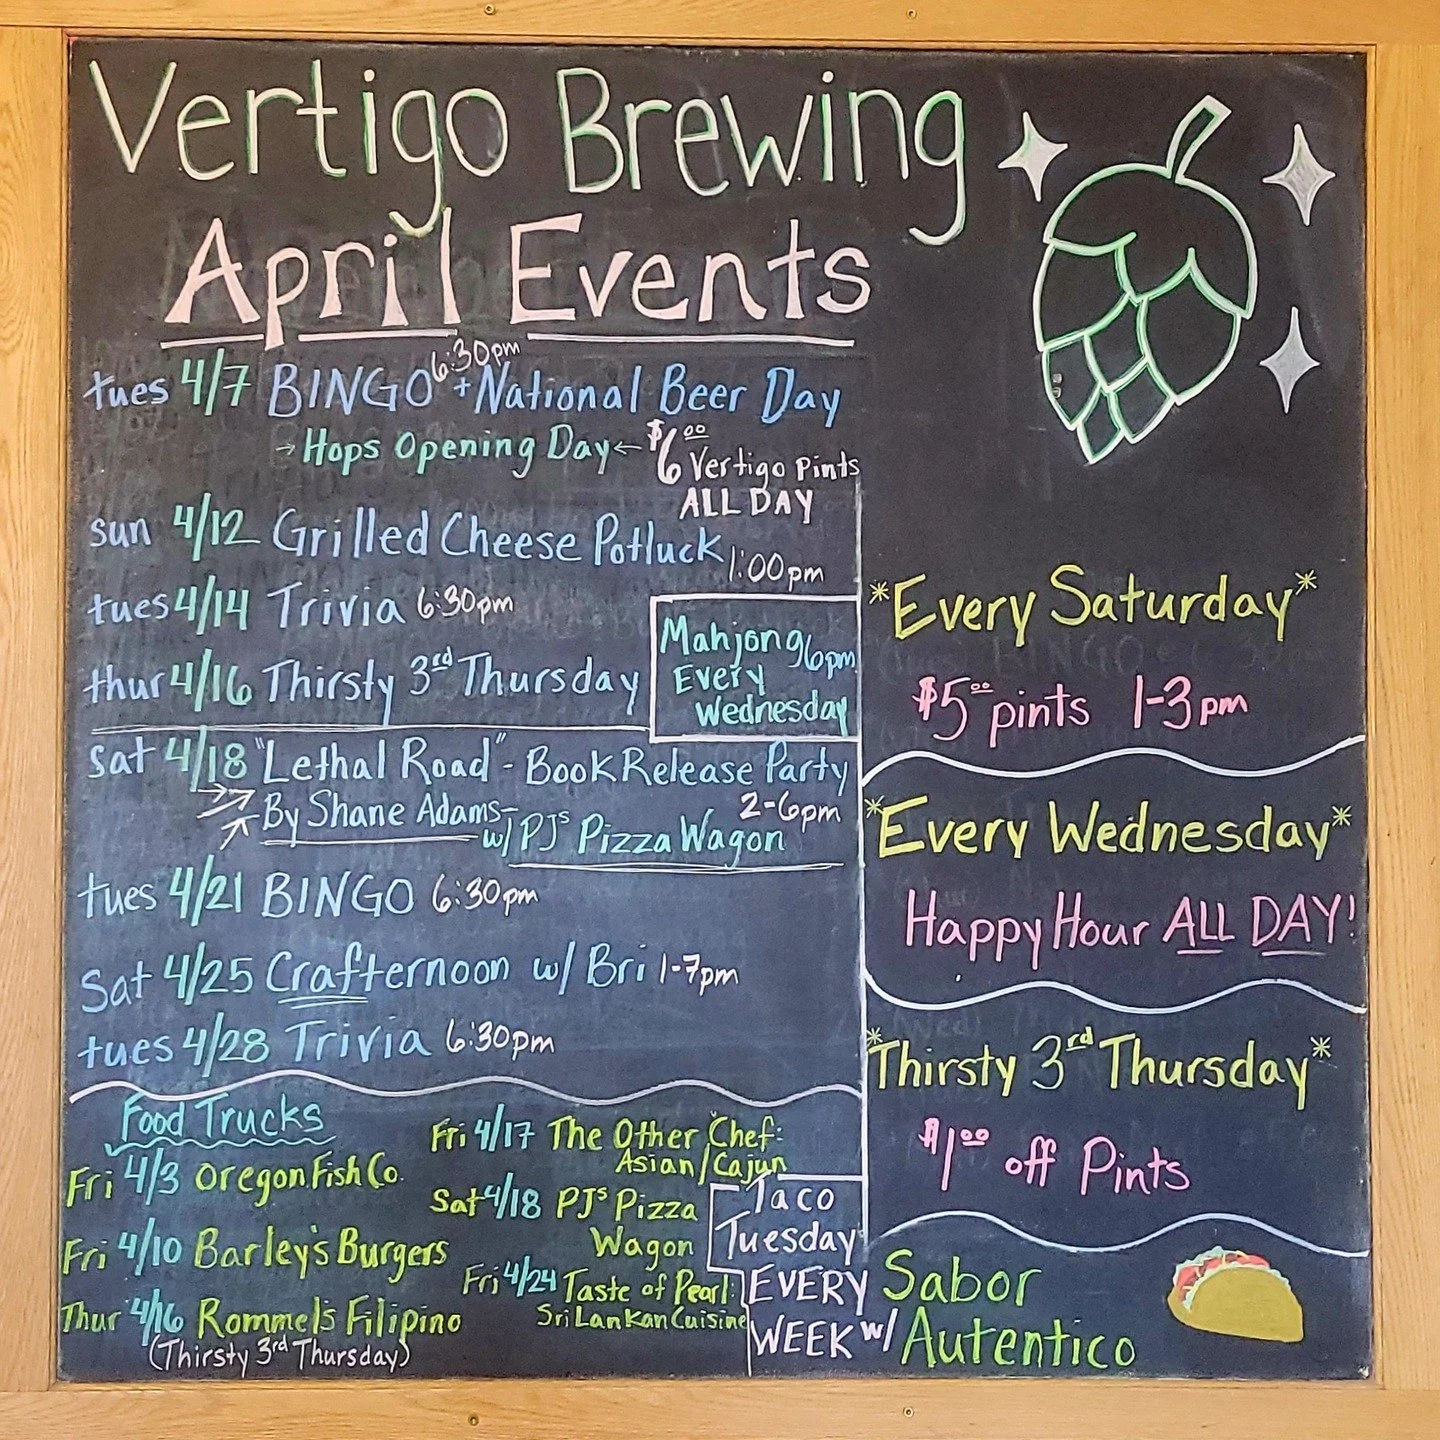 Vertigo Brewing
April Events
tues 4/7 BINGO 6:30pm + National Beer Day
→ Hops Opening Day ← $6.00 Vertigo pints
ALL DAY
sun 4/12 Grilled Cheese Potluck 1:00pm
tues 4/14 Trivia 6:30pm
thur 4/16 Thirsty 3rd Thursday
Mahjong 6pm
Every
Wednesday
Sat 4/18 "Lethal Road" - Book Release Party
By Shane Adams- 2-6pm
w/ PJs Pizza Wagon
tues 4/21 BINGO 6:30pm
Sat 4/25 Crafternoon w/ Bri 1-7pm
tues 4/28 Trivia 6:30pm
Food Trucks
Fri 4/3 Oregon Fish Co.
Fri 4/10 Barley's Burgers
Thur 4/16 Rommel's Filipino
(Thirsty 3rd Thursday)
Fri 4/17 The Other Chef:
Asian/Cajun
Sat 4/18 PJs Pizza
Wagon
Fri 4/24 Taste of Pearl:
Sri Lankan Cuisine
*Every Saturday*
$5.00 pints 1-3pm
*Every Wednesday*
Happy Hour ALL DAY!
*Thirsty 3rd Thursday*
$1.00 off Pints
Taco
Tuesday
EVERY
WEEK w/
Sabor
Autentico